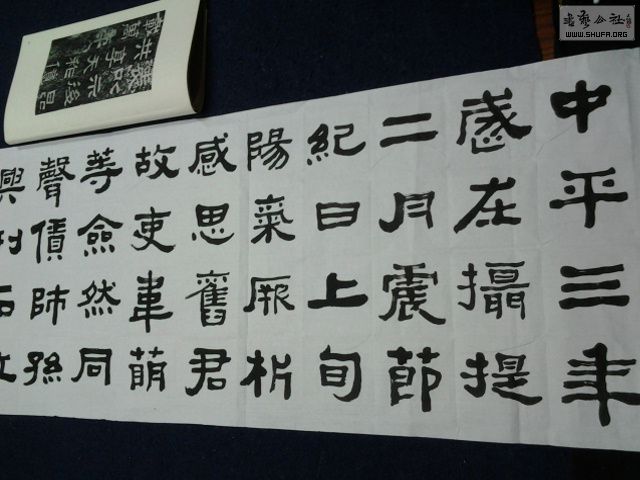 中平三年
歲在攝提
二月震節
紀日上旬
陽氣厥析
感思舊君
故吏韋萌
等僉然同
聲賃師孫
興刊石立
書藝公社
WWW.SHUFA.ORG